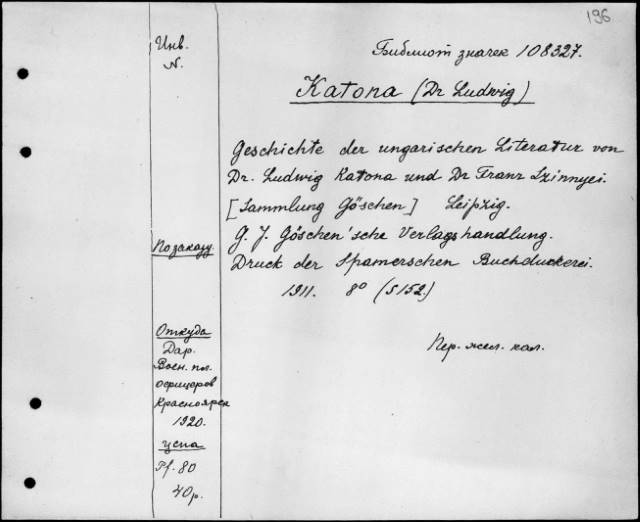 196
Инв.
N.
Библиот значек 108327.
Katona (Dr Ludwig)
Geschichte der ungarischen Literatur von
Dr. Ludwig Katona und Dr Franz Szinnyei.
[Sammlung Göschen] Leipzig.
G. J. Göschen'sche Verlagshandlung.
Druck der Spamerschen Buchduckerei.
1911. 8° (S 152.)
По заказу
Откуда
Дар.
Воен. пл.
офицеров
Красноярск
1920.
цена
Pf. 80
40 р.
Пер. жел. кол.